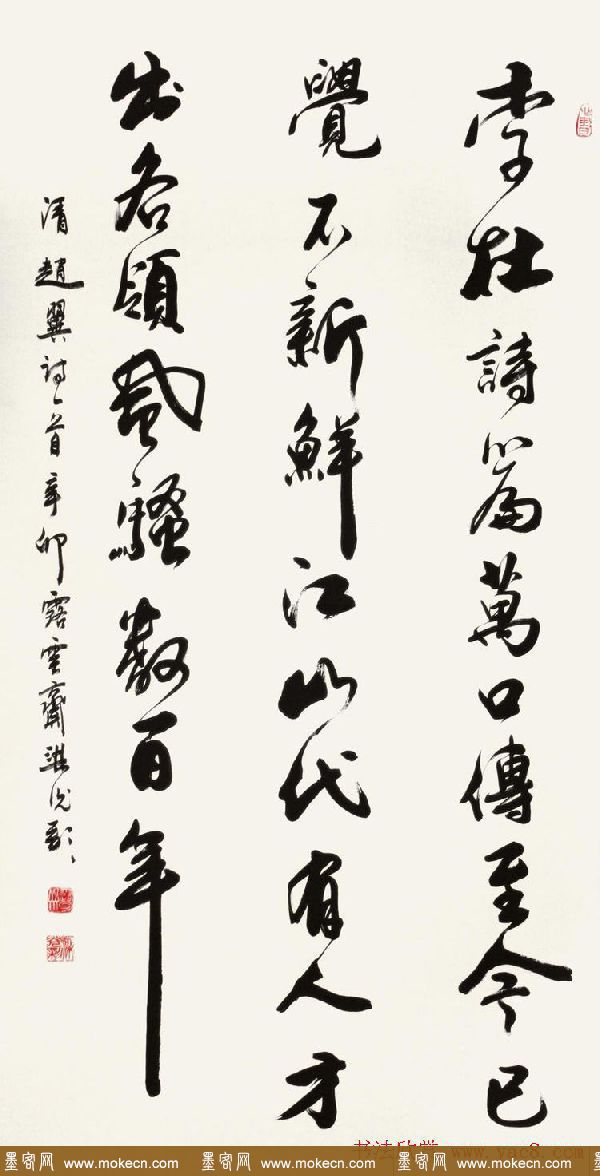 李杜詩篇萬口傳至今已
覺不新鮮江山代有人才
出各領風騷數百年
清趙翼詩一首辛卯露雲齋
书法欣赏 www.yac8.com
墨客网 www.mokecn.com 墨客网 www.mokecn.com 墨客网 www.mokecn.com